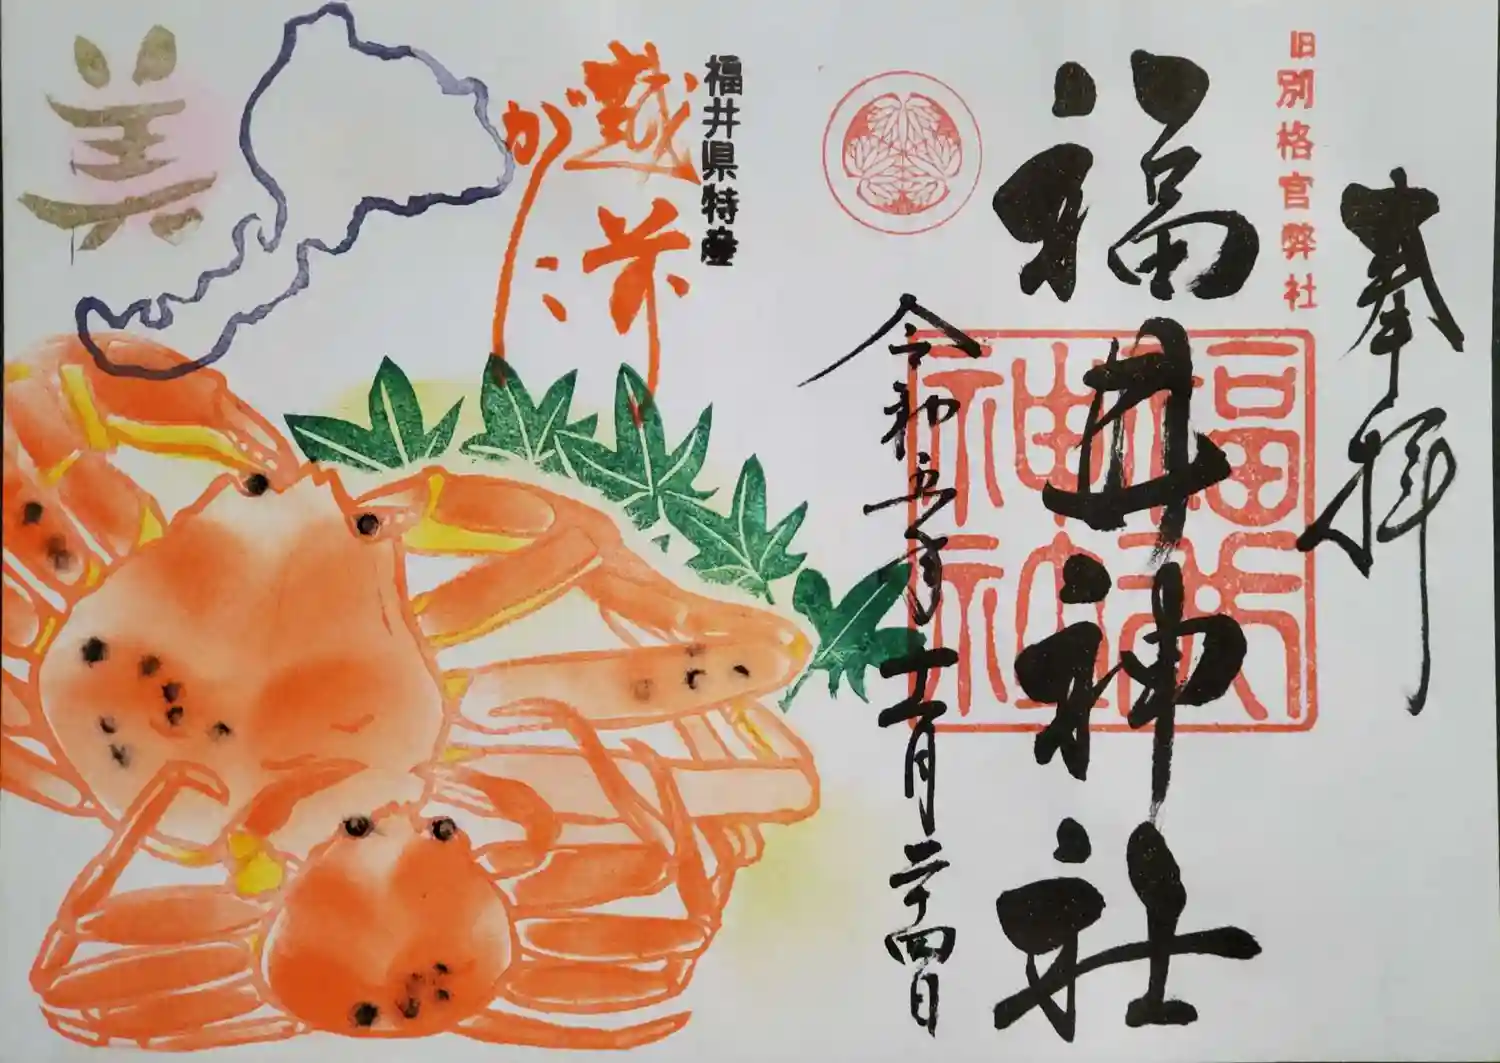 奉拝
旧別格官弊社
福井神社
福井神社
令和五年十一月二十四日
福井県特産
越前
がに
美